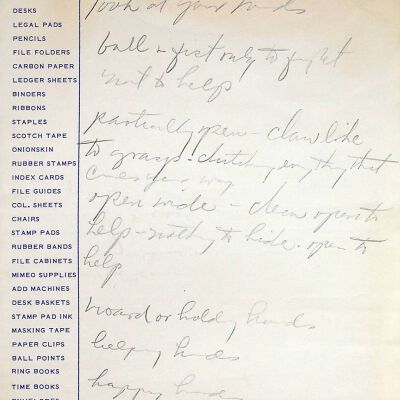 DESKS
LEGAL PADS
PENCILS
FILE FOLDERS
CARBON PAPER
LEDGER SHEETS
BINDERS
RIBBONS
STAPLES
SCOTCH TAPE
ONIONSKIN
RUBBER STAMPS
INDEX CARDS
FILE GUIDES
COL. SHEETS
CHAIRS
STAMP PADS
RUBBER BANDS
FILE CABINETS
MIMEO SUPPLIES
ADD MACHINES
DESK BASKETS
STAMP PAD INK
MASKING TAPE
PAPER CLIPS
BALL POINTS
RING BOOKS
TIME BOOKS
ENVELOPES
look at your hands
ball a fist only to fight
not to help
partially open - claw like
to grasp. clutching everything that
comes your way
open wide - open to
help - nothing to hide. open to
help
hoard or holdy hands
helping hands
happy hands